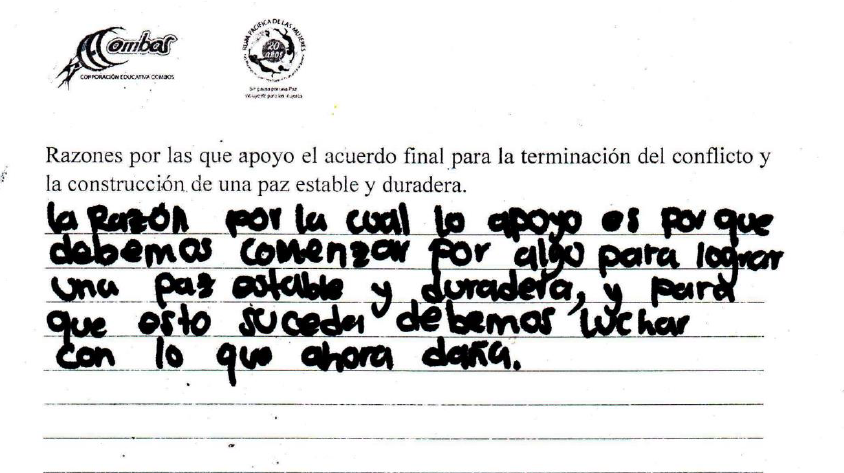 Combos
CORPORACIÓN EDUCATIVA COMBOS
RUTA PACÍFICA DE LAS MUJERES
20
años
Razones por las que apoyo el acuerdo final para la terminación del conflicto y
la construcción de una paz estable y duradera.
la Razón por la cual lo apoyo es por que
debemos comenzar por algo para lograr
una paz estable y duradera, y para
que esto suceda debemos luchar
con lo que ahora daña.